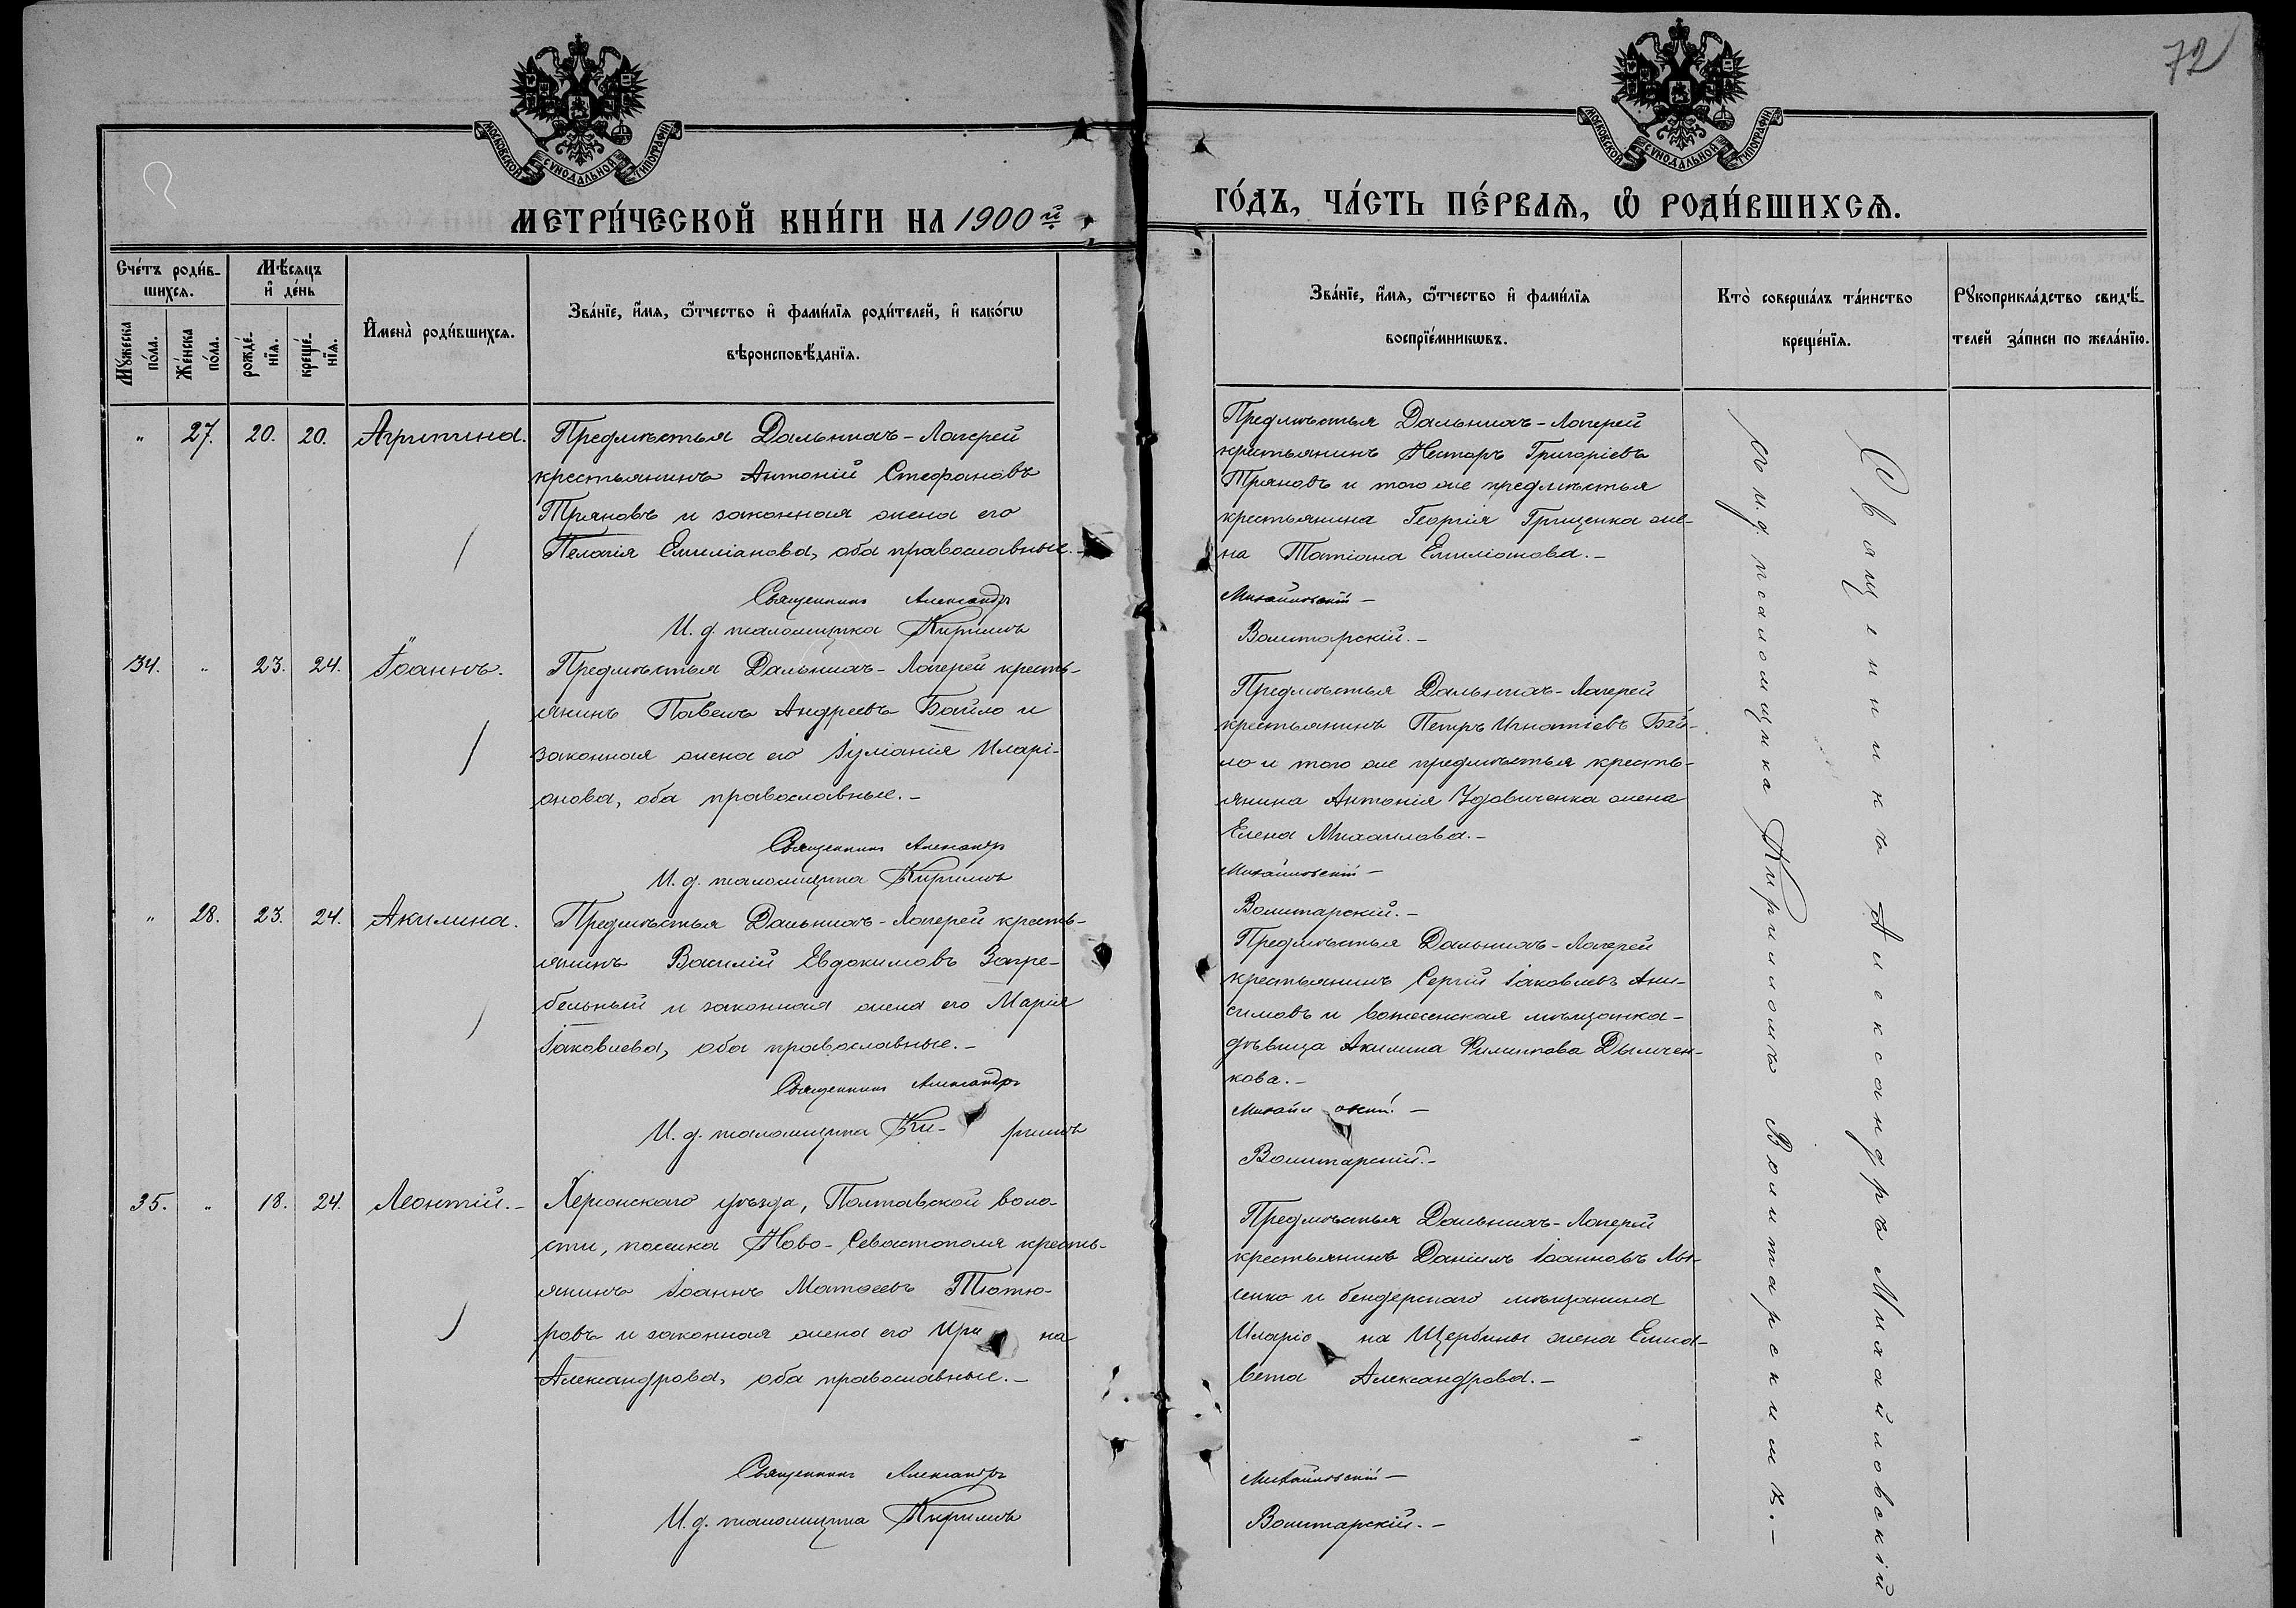 72
МОСКОВСКОЙ СѴНОДАЛЬНОЙ ТИПОГРАФІИ
МОСКОВСКОЙ СѴНОДАЛЬНОЙ ТИПОГРАФІИ
МЕТРИ́ЧЕСКОЙ КНИ́ГИ НА 1900 й
ГО́ДЪ, ЧА́СТЬ ПЕ́РВАѦ, Ѡ҆ РОДИ́ВШИХСѦ.
Сче́тъ роди́в-
шихсѧ.
Мѣ́сѧцъ
и҆ де́нь
Мꙋ́жеска
по́ла.
Же́нска
по́ла.
рожде́-
нїѧ.
креще́-
нїѧ.
И҆мена̀ роди́вшихсѧ.
Зва́нїе, и҆́мѧ, ѻ҆́тчество и҆ фами́лїѧ роди́телей, и҆ како́гѡ
вѣроисповѣ́данїѧ.
Зва́нїе, и҆́мѧ, ѻ҆́тчество и҆ фами́лїѧ
воспрїе́мникѡвъ.
Кто̀ соверша́лъ та́инство
креще́нїѧ.
Рꙋкоприкла́дство свидѣ́-
телей за́писи по жела́нїю.
" 27. 20. 20. Агрипина.
Предмѣстья Дальнихъ-Лагерей
крестьянинъ Антоній Стефановъ
Тряновъ и законная жена его
Пелагія Емиліанова, оба православные.-
Священникъ Александръ
И. д. псаломщика Кириллъ
Предмѣстья Дальнихъ-Лагерей
крестьянинъ Несторъ Григоріевъ
Тряновъ и того же предмѣстья
крестьянина Георгія Грищенка же-
на Татіана Емиліанова.-
Михайловскій-
Волитарскій.-
34. " 23. 24. Іоаннъ.
Предмѣстья Дальнихъ-Лагерей кресть-
янинъ Павелъ Андреевъ Байло и
законная жена его Іуліанія Иларі-
онова, оба православные.-
Священникъ Александръ
И. д. псаломщика Кириллъ
Предмѣстья Дальнихъ-Лагерей
крестьянинъ Петръ Игнатіевъ Бай-
ло и того же предмѣстья кресть-
янина Антонія Удовиченка жена
Елена Михаилова.-
Михайловскій-
Волитарскій.-
" 28. 23. 24. Акилина.
Предмѣстья Дальнихъ-Лагерей кресть-
янинъ Василій Евдокимовъ Загре-
бельный и законная жена его Марія
Іаковлева, оба православные.-
Священникъ Александръ
И. д. псаломщика Ки- риллъ
Предмѣстья Дальнихъ-Лагерей
крестьянинъ Сергій Іаковлевъ Ани-
симовъ и вознесенская мѣщанка-
дѣвица Акилина Филиппова Дымчен-
кова.-
Михайловскій.-
Волитарскій.-
35. " 18. 24. Леонтій.-
Херсонскаго уѣзда, Полтавской воло-
сти, поселка Ново-Севастополя кресть-
янинъ Іоаннъ Матѳеевъ Тютю-
ровъ и законная жена его Ири на
Александрова, оба православные.-
Священникъ Александръ
И. д. псаломщика Кириллъ
Предмѣстья Дальнихъ-Лагерей
крестьянинъ Даніилъ Іоанновъ Лы-
сенко и бендерскаго мѣщанина
Иларіо на Щербины жена Елиса-
вета Александрова.-
Михайловскій-
Волитарскій.-
Священникъ Александръ Михайловскій
съ и. д. псаломщика Кирилломъ Волитарскимъ.-